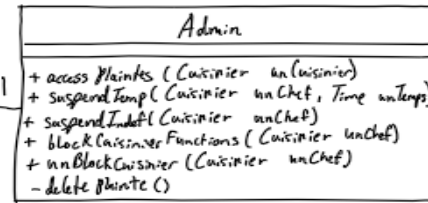 Admin
1
+ access Plaintes ( Cuisinier un Cuisinier)
+ suspendTemp ( Cuisinier unChef, Time unTemps)
+ suspendIndef( Cuisinier unChef)
+ blockCuisinierFunctions ( Cuisinier unChef)
+ unBlockCuisinier ( Cuisinier unChef)
- delete Plainte ()